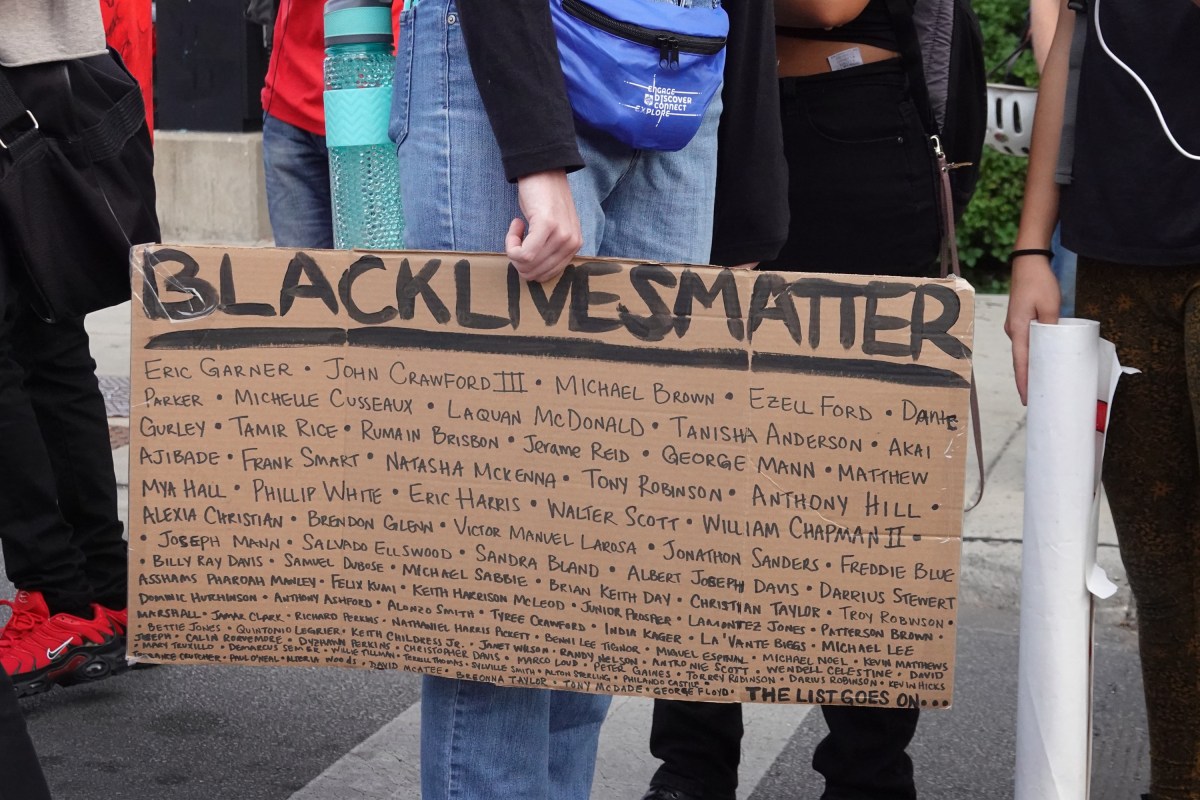 ENGAGE
DISCOVER
CONNECT
EXPLORE
BLACK LIVES MATTER
ERIC GARNER • JOHN CRAWFORD III • MICHAEL BROWN • EZELL FORD • DANTE
PARKER • MICHELLE CUSSEAUX • LAQUAN MCDONALD • TANISHA ANDERSON • AKAI
GURLEY • TAMIR RICE • RUMAIN BRISBON • JERAME REID • GEORGE MANN • MATTHEW
AJIBADE • FRANK SMART • NATASHA MCKENNA • TONY ROBINSON • ANTHONY HILL •
MYA HALL • PHILLIP WHITE • ERIC HARRIS • WALTER SCOTT • WILLIAM CHAPMAN II •
ALEXIA CHRISTIAN • BRENDON GLENN • VICTOR MANUEL LAROSA • JONATHON SANDERS • FREDDIE BLUE
• JOSEPH MANN • SALVADO ELLSWOOD • SANDRA BLAND • ALBERT JOSEPH DAVIS • DARRIUS STEWERT
• BILLY RAY DAVIS • SAMUEL DUBOSE • MICHAEL SABBIE • BRIAN KEITH DAY • CHRISTIAN TAYLOR • TROY ROBINSON •
ASSHAMS PHAROAH MANLEY • FELIX KUMI • KEITH HARRISON MCLEOD • JUNIOR PROSPER • LAMONTEZ JONES • PATTERSON BROWN •
DOMINIC HUTCHINSON • ANTHONY ASHFORD • ALONZO SMITH • TYREE CRAWFORD • INDIA KAGER • LA'VANTE BIGGS • MICHAEL LEE
MARSHALL • JAMAR CLARK • RICHARD PERKINS • NATHANIEL HARRIS PICKETT • BENNI LEE TIGNOR • MIGUEL ESPINAL • MICHAEL NOEL • KEVIN MATTHEWS
• BETTIE JONES • QUINTONIO LEGRIER • KEITH CHILDRESS JR. • JANET WILSON • RANDY NELSON • ANTRONIE SCOTT • WENDELL CELESTINE • DAVID
JOSEPH • CALIN • DYZHAWN PERKINS • CHRISTOPHER DAVIS • MARCO LOUD • PETER GAINES • TORREY ROBINSON • DARIUS ROBINSON • KEVIN HICKS
• MARY TRUXILLO • DEMARCUS SEMER • WILLIE TILLMAN • TERRILL THOMAS • SYLVILLE SMITH • ALTON STERLING • PHILANDO CASTILE •
TERENCE CRUTCHER • PAUL O'NEAL • ALTERIA WOODS • DAVID MCATEE • BREONNA TAYLOR • TONY MCDADE • GEORGE FLOYD • THE LIST GOES ON...